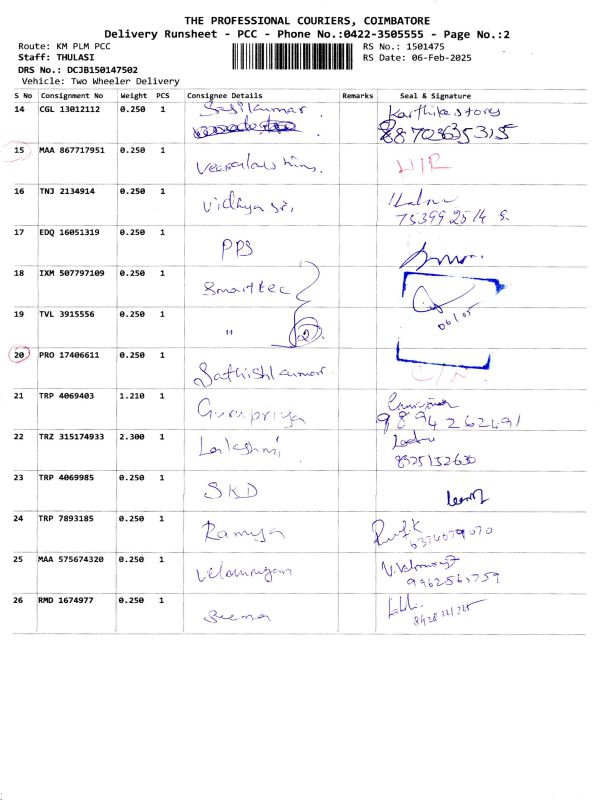 THE PROFESSIONAL COURIERS, COIMBATORE
Delivery Runsheet - PCC - Phone No.:0422-3505555 - Page No.:2
Route: KM PLM PCC RS No.: 1501475
Staff: THULASI RS Date: 06-Feb-2025
DRS No.: DCJB150147502
Vehicle: Two Wheeler Delivery
S No Consignment No Weight PCS Consignee Details Remarks Seal & Signature
14 CGL 13012112 0.250 1 Sasikumar Karthika stores
88703635315
15 MAA 867717951 0.250 1
16 TNJ 2134914 0.250 1 Vidhya sri,
75399 2514
17 EDQ 16051319 0.250 1 PPS
18 IXM 507797109 0.250 1 Smarttec
19 TVL 3915556 0.250 1 "
2
06/05
20 PRO 17406611 0.250 1 Sathishkumar
21 TRP 4069403 1.210 1 Gurupriya
9894262491
22 TRZ 315174933 2.300 1 Lakshmi
8925152630
23 TRP 4069985 0.250 1 SKD
24 TRP 7893185 0.250 1 Ramya
6374079070
25 MAA 575674320 0.250 1 Velamurugan
9962561759
26 RMD 1674977 0.250 1 Seema